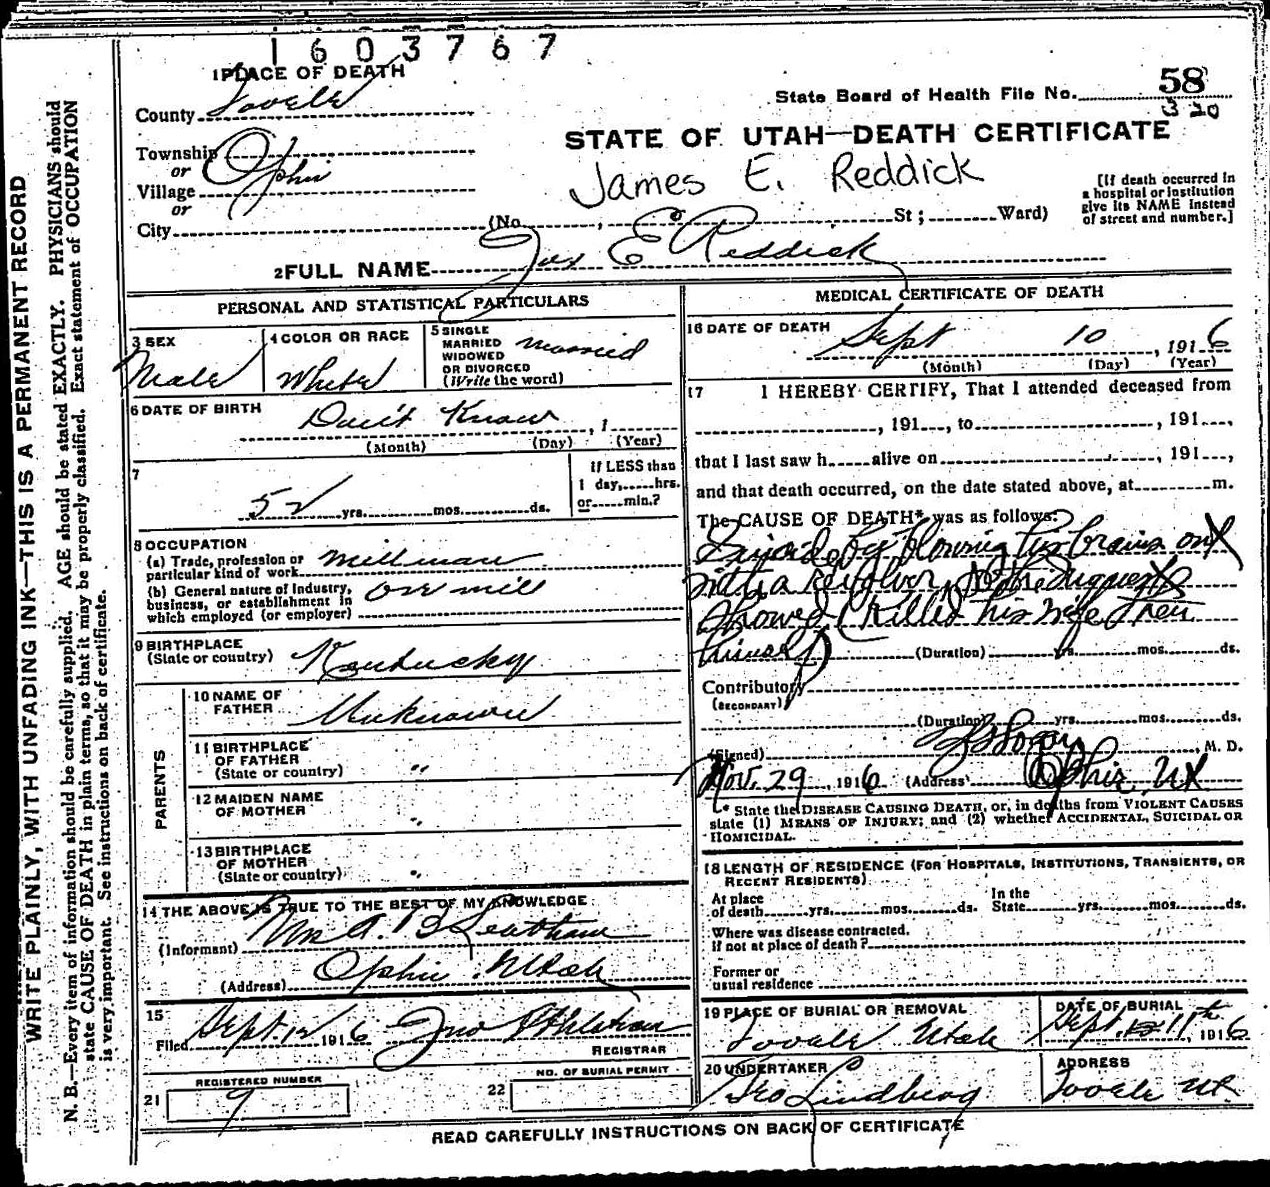 1603767
1 PLACE OF DEATH
County Tooele
Township
or
Village Ophir
or
City
State Board of Health File No. 58
320
STATE OF UTAH—DEATH CERTIFICATE
James E. Reddick
[If death occurred in a hospital or institution give its NAME instead of street and number.]
(No. , St; Ward)
2 FULL NAME Jas E Reddick
PERSONAL AND STATISTICAL PARTICULARS
3 SEX
Male
4 COLOR OR RACE
White
5 SINGLE MARRIED WIDOWED OR DIVORCED (Write the word) Married
6 DATE OF BIRTH
Don't Know , 1
(Month) (Day) (Year)
7
52 yrs. mos. ds.
If LESS than 1 day, hrs. or min.?
8 OCCUPATION
(a) Trade, profession or particular kind of work millman
(b) General nature of Industry, business, or establishment in which employed (or employer) ore mill
9 BIRTHPLACE
(State or country) Kentucky
PARENTS
10 NAME OF FATHER Unknown
11 BIRTHPLACE OF FATHER (State or country) "
12 MAIDEN NAME OF MOTHER "
13 BIRTHPLACE OF MOTHER (State or country) "
14 THE ABOVE IS TRUE TO THE BEST OF MY KNOWLEDGE
(Informant)
(Address) Ophir Utah
15
Filed Sept. 12 1916
REGISTRAR
21 REGISTERED NUMBER
9
22 NO. OF BURIAL PERMIT
MEDICAL CERTIFICATE OF DEATH
16 DATE OF DEATH
Sept 10 , 1916
(Month) (Day) (Year)
17 I HEREBY CERTIFY, That I attended deceased from
, 191 , to , 191 ,
that I last saw h alive on , 191 ,
and that death occurred, on the date stated above, at m.
The CAUSE OF DEATH* was as follows:
Suicide by blowing his brains out
with a revolver, as the Inquest
showed killed his wife then
himself (Duration) yrs. mos. ds.
Contributory
(SECONDARY)
(Duration) yrs. mos. ds.
(Signed) , M. D.
Nov. 29, 1916 (Address) Ophir, Ut
* State the DISEASE CAUSING DEATH, or, in deaths from VIOLENT CAUSES
state (1) MEANS OF INJURY; and (2) whether ACCIDENTAL, SUICIDAL OR
HOMICIDAL.
18 LENGTH OF RESIDENCE (FOR HOSPITALS, INSTITUTIONS, TRANSIENTS, OR
RECENT RESIDENTS)
At place of death yrs. mos. ds. In the State yrs. mos. ds.
Where was disease contracted.
if not at place of death?
Former or
usual residence
19 PLACE OF BURIAL OR REMOVAL
Tooele Utah
DATE OF BURIAL
Sept. 11th, 1916
20 UNDERTAKER
Geo Lindberg
ADDRESS
Tooele Ut.
READ CAREFULLY INSTRUCTIONS ON BACK OF CERTIFICATE
WRITE PLAINLY, WITH UNFADING INK—THIS IS A PERMANENT RECORD
N. B.—Every item of information should be carefully supplied. AGE should be stated EXACTLY. PHYSICIANS should
state CAUSE OF DEATH in plain terms, so that it may be properly classified. Exact statement of OCCUPATION
is very important. See instructions on back of certificate.